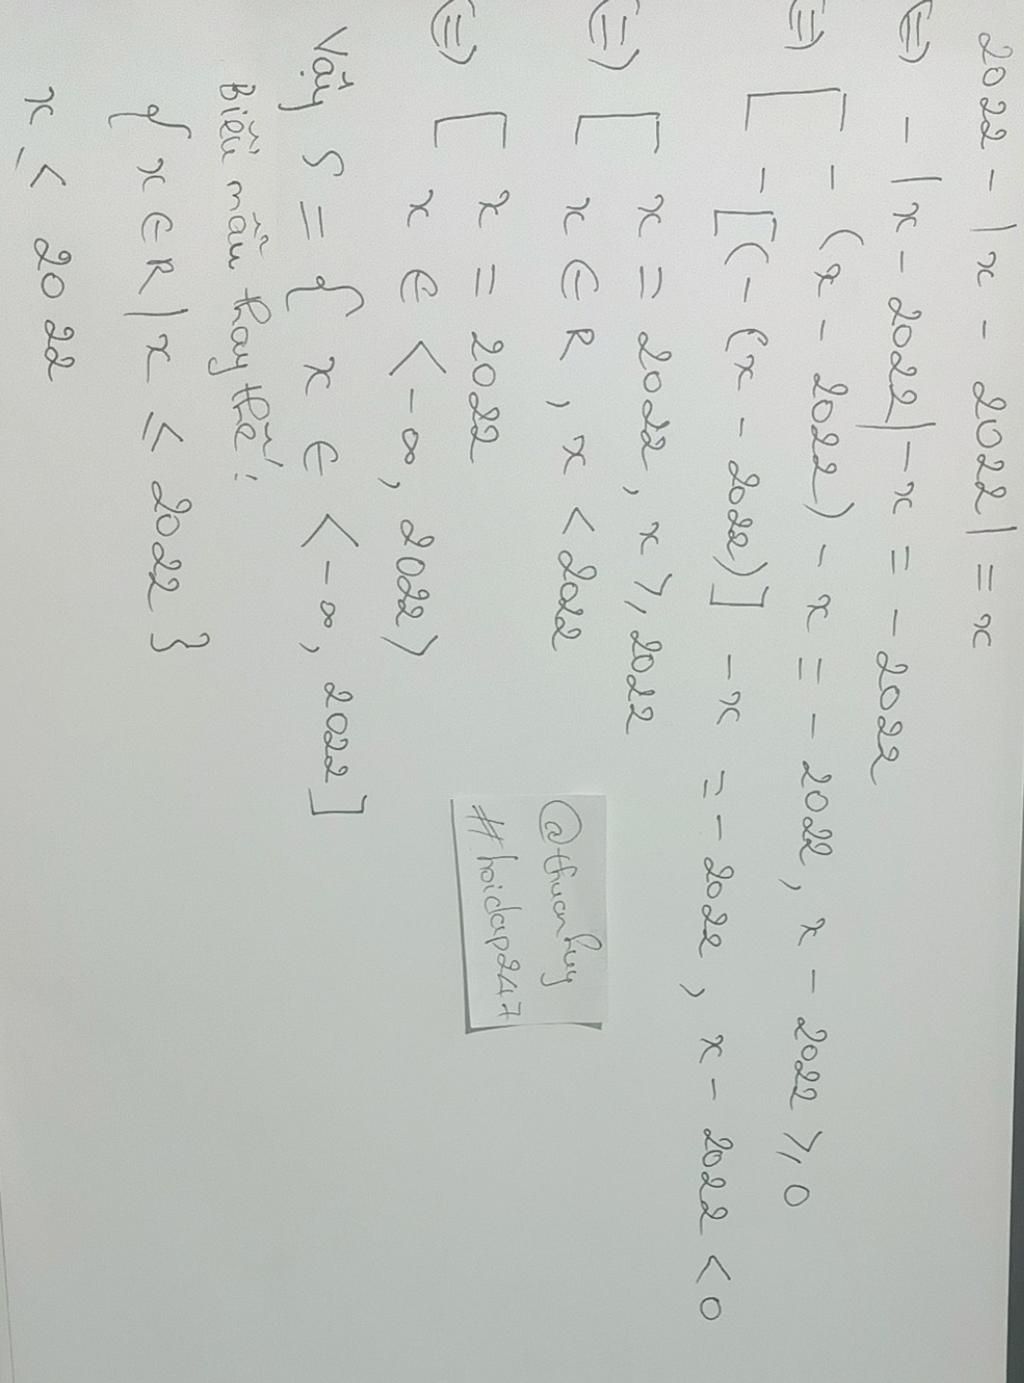 2022 - |x - 2022| = x
(=) - |x - 2022| - x = - 2022
(=) [ - (x - 2022) - x = - 2022, x - 2022 ≥ 0
- [(- (x - 2022)] - x = - 2022, x - 2022 < 0
(=) [ x = 2022, x ≥ 2022
x ∈ R, x < 2022
(=) [ x = 2022
x ∈ < -∞, 2022 )
Vậy S = { x ∈ < -∞, 2022 ]
Biểu mẫu thay thế:
{ x ∈ R | x ≤ 2022 }
x ≤ 2022
@thuanhuy
#hoidap247